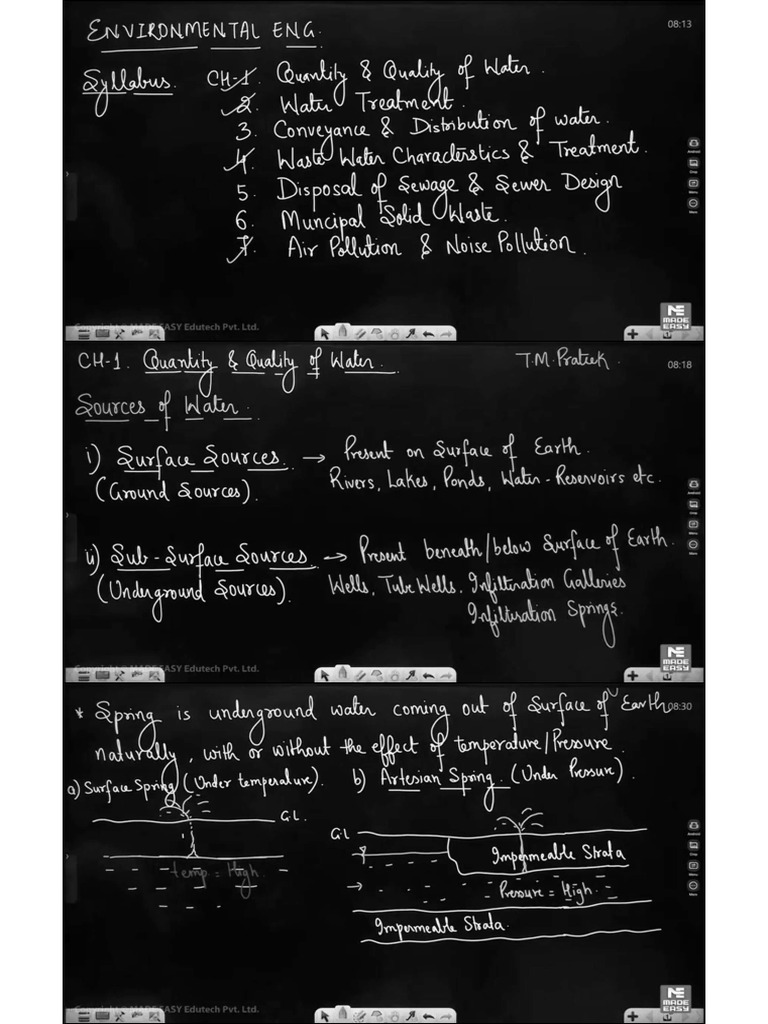 ENVIRONMENTAL ENG.
08:13
Syllabus. CH-1. Quantity & Quality of Water.
2. Water Treatment.
3. Conveyance & Distribution of water.
4. Waste Water Characterstics & Treatment.
5. Disposal of Sewage & Sewer Design
6. Muncipal Solid Waste.
7. Air Pollution & Noise Pollution.
MADE EASY
EASY Edutech Pvt. Ltd.
CH-1. Quantity & Quality of Water.
T.M.Prateek.
08:18
Sources of Water.
i) Surface Sources. → Present on Surface of Earth.
(Ground Sources). Rivers, Lakes, Ponds, Water-Reservoirs etc.
ii) Sub-Surface Sources → Present beneath/below Surface of Earth.
(Underground Sources). Wells, Tube Wells. Infilturation Galleries
Infilturation Springs.
MADE EASY
EASY Edutech Pvt. Ltd.
* Spring is underground water coming out of Surface of Earth
08:30
naturally, with or without the effect of temperature/Pressure.
a) Surface Spring (Under temperature). b) Artesian Spring. (Under Pressure).
G.L.
G.L
Impermeable Strata
temp. = High.
Pressure = High.
Impermeable Strata.
MADE EASY
EASY Edutech Pvt. Ltd.